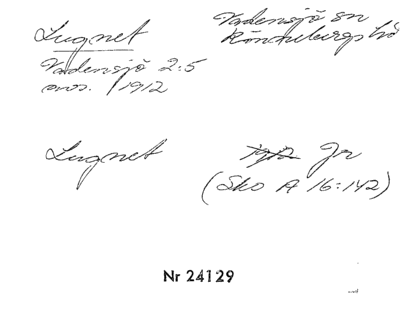 Lugnet
Vadensjö sn
Rönnebergs hd
Vadensjö 2:5
avs. 1912
Lugnet
1912 Jr
(Sko A 16:142)
Nr 24129